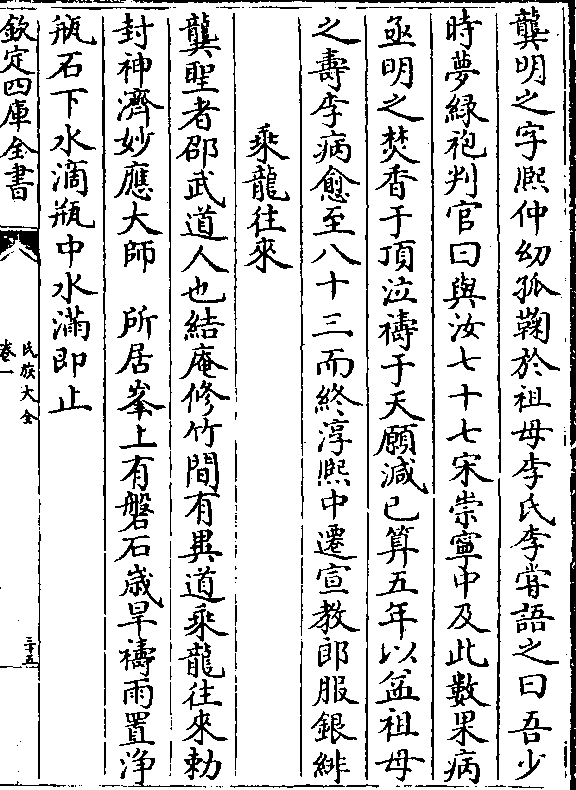 龔明之字熈仲幼孤鞠於祖母李氏李甞語之曰吾少
時夢緑袍判官曰與汝七十七宋崇寧中及此數果病
亟明之焚香于頂泣禱于天願減已算五年以益祖母
之壽李病愈至八十三而終淳熈中遷宣教郎服銀緋
乘龍往來
龔聖者邵武道人也結庵修竹間有異道乘龍往來勅
封神濟妙應大師　所居峯上有磐石歲旱禱雨置浄
瓶石下水滴瓶中水滿即止
欽定四庫全書
氏族大全
卷一
三十五